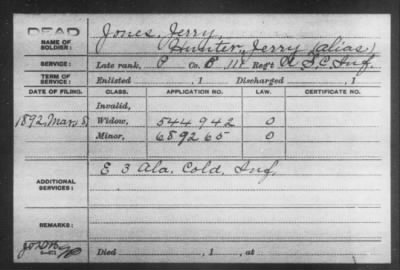 DEAD
NAME OF SOLDIER: Jones, Jerry,
Hunter, Jerry (alias)
SERVICE: Late rank, P Co. B 111 Reg't U.S.C. Inf.
TERM OF SERVICE: Enlisted , 1 Discharged , 1
DATE OF FILING. CLASS. APPLICATION NO. LAW. CERTIFICATE NO.
Invalid,
1892, Mar. 8 Widow, 544942 O
Minor, 689265 O
ADDITIONAL SERVICES: E 3 Ala. Cold. Inf.
REMARKS:
Died , 1 , at